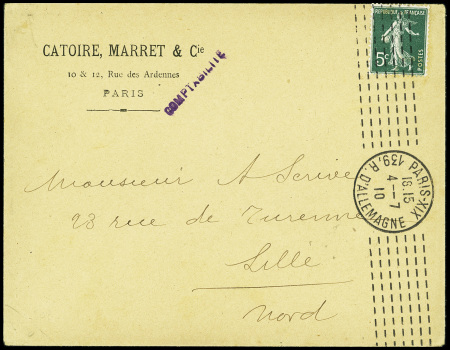 CATOIRE, MARRET & Cie
10 & 12, Rue des Ardennes
PARIS
COMPTABILITÉ
REPUBLIQUE FRANÇAISE
5c
POSTES
PARIS-XIX
18.15
4-7
10
139, R. D'ALLEMAGNE
Monsieur A Scrive
23 rue de Turenne
Lille
Nord